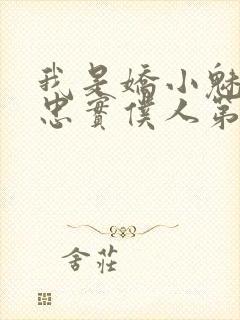 我是嬌小魅
忠實僕人第
舍莊